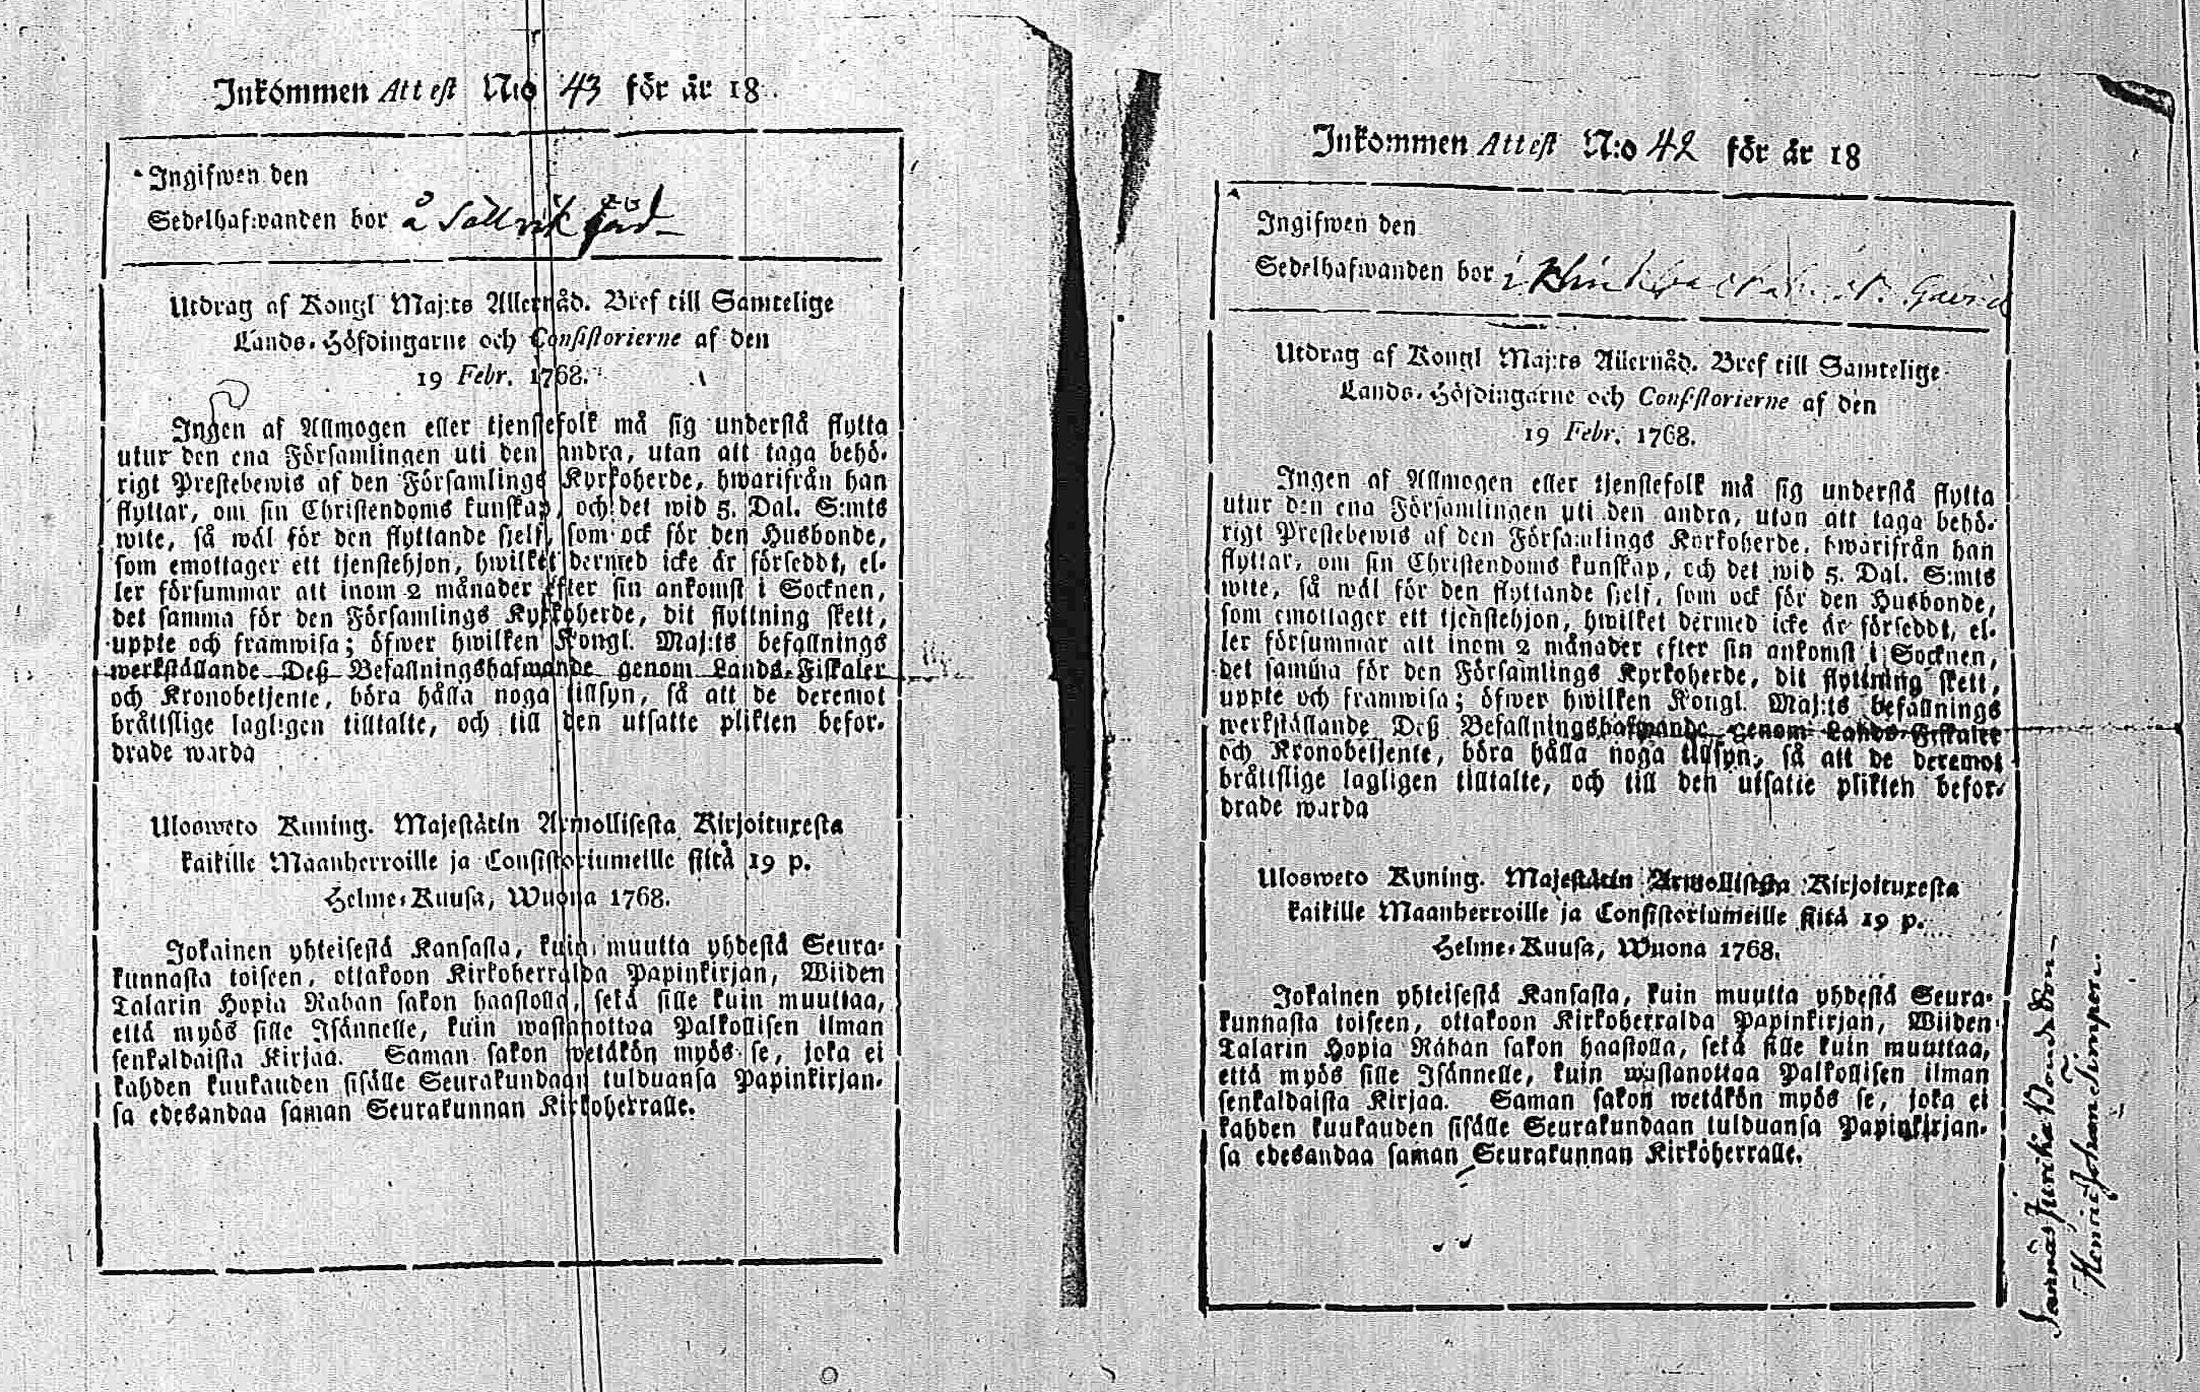 Inkommen Attest N:o 43 för år 18
Ingifwen den
Sedelhafwanden bor å
Utdrag af Kongl Maj:ts Allernåd. Bref till Samtelige
Lands-Höfdingarne och Consistorierne af den
19 Febr. 1768.
Ingen af Allmogen eller tjenstefolk må sig understå flytta
utur den ena Församlingen uti den andra, utan att taga behö-
rigt Prestebewis af den Församlings Kyrkoherde, hwarifrån han
flyttar, om sin Christendoms kunskap, och det wid 5. Dal. S:mts
wite, så wäl för den flyttande sjelf, som ock för den Husbonde,
som emottager ett tjenstehjon, hwilket dermed icke är försedt, el-
ler försummar att inom 2 månader efter sin ankomst i Socknen,
det samma för den Församlings Kyrkoherde, dit flyttning skett,
uppte och framwisa; öfwer hwilken Kongl. Maj:ts befallnings
werkställande Deß Befallningshafwande genom Lands-Fiskaler
och Kronobetjente, böra hålla noga tillsyn, så att de deremot
bråttslige lagligen tilltalte, och till den utsatte plikten befor-
drade warda
Ulosweto Kuning. Majestätin Armollisesta Kirjoituxesta
kaikille Maanherroille ja Consistoriumeille siitä 19 p.
Helme-Kuusa, Wuona 1768.
Jokainen yhteisestä Kansasta, kuin muutta yhdestä Seura-
kunnasta toiseen, ottakoon Kirkoherralda Papinkirjan, Wiiden
Talarin Hopia Rahan sakon haastolla, sekä sille kuin muuttaa,
että myös sille Isännelle, kuin wastanottaa Palkollisen ilman
senkaldaista Kirjaa. Saman sakon wetäkön myös se, joka ei
kahden kuukauden sisälle Seurakundaan tulduansa Papinkirjan-
sa edesandaa saman Seurakunnan Kirkoherralle.
Inkommen Attest N:o 42 för år 18
Ingifwen den
Sedelhafwanden bor i
Utdrag af Kongl Maj:ts Allernåd. Bref till Samtelige
Lands-Höfdingarne och Consistorierne af den
19 Febr. 1768.
Ingen af Allmogen eller tjenstefolk må sig understå flytta
utur den ena Församlingen uti den andra, utan att taga behö-
rigt Prestebewis af den Församlings Kyrkoherde, hwarifrån han
flyttar, om sin Christendoms kunskap, och det wid 5. Dal. S:mts
wite, så wäl för den flyttande sjelf, som ock för den Husbonde,
som emottager ett tjenstehjon, hwilket dermed icke är försedt, el-
ler försummar att inom 2 månader efter sin ankomst i Socknen,
det samma för den Församlings Kyrkoherde, dit flyttning skett,
uppte och framwisa; öfwer hwilken Kongl. Maj:ts befallnings
werkställande Deß Befallningshafwande genom Lands-Fiskaler
och Kronobetjente, böra hålla noga tillsyn, så att de deremot
bråttslige lagligen tilltalte, och till den utsatte plikten befor-
drade warda
Ulosweto Kuning. Majestätin Armollisesta Kirjoituxesta
kaikille Maanherroille ja Consistoriumeille siitä 19 p.
Helme-Kuusa, Wuona 1768.
Jokainen yhteisestä Kansasta, kuin muutta yhdestä Seura-
kunnasta toiseen, ottakoon Kirkoherralda Papinkirjan, Wiiden
Talarin Hopia Rahan sakon haastolla, sekä sille kuin muuttaa,
että myös sille Isännelle, kuin wastanottaa Palkollisen ilman
senkaldaista Kirjaa. Saman sakon wetäkön myös se, joka ei
kahden kuukauden sisälle Seurakundaan tulduansa Papinkirjan-
sa edesandaa saman Seurakunnan Kirkoherralle.
Henric Johan Timper.